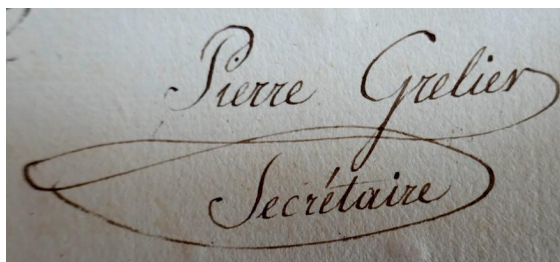 Pierre Grelier
Secrétaire